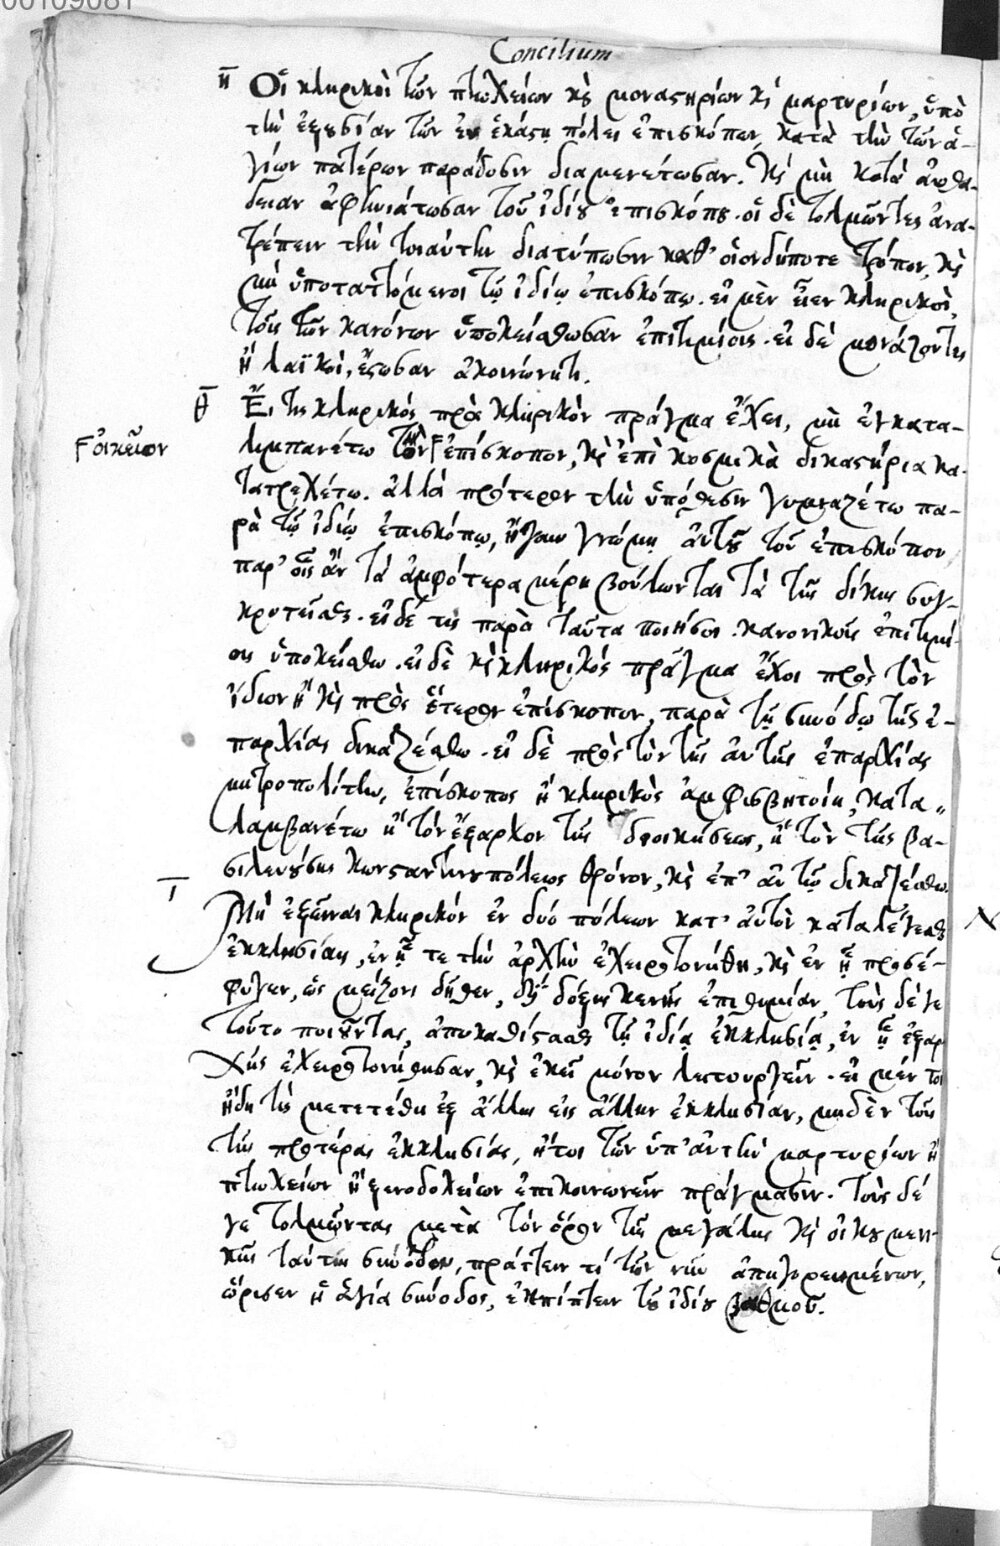 00109081
Concilium
η Οἱ κληρικοὶ τῶν πτωχείων κς μοναστηρίων κς μαρτυρίων, ὑπὸ
τὴν ἐξουσίαν τῶν ἐν ἑκάστῃ πόλει ἐπισκόπων, κατὰ τὴν τῶν ἁ-
γίων πατέρων παράδοσιν διαμενέτωσαν. κς μὴ κατὰ αὐθά-
δειαν ἀφηνιάτωσαν τοῦ ἰδίου ἐπισκόπου. οἱ δὲ τολμῶντες ἀνα-
τρέπειν τὴν τοιαύτην διατύπωσιν καθ' οἱονδήποτε τρόπον, κς
μὴ ὑποταττόμενοι τῷ ἰδίῳ ἐπισκόπῳ. εἰ μὲν εἶεν κληρικοὶ,
τοῖς τῶν κανόνων ὑποκείσθωσαν ἐπιτιμίοις. εἰ δὲ μονάζοντες
ἢ λαϊκοὶ, ἔστωσαν ἀκοινώνητοι.
θ Εἴ τις κληρικὸς πρὸς κληρικὸν πράγμα ἔχει, μὴ ἐγκατα-
λιμπανέτω τὸν ἐπίσκοπον, κς ἐπὶ κοσμικὰ δικαστήρια κα-
οἰκεῖον
τατρεχέτω. ἀλλὰ πρότερον τὴν ὑπόθεσιν γυμναζέτω πα-
ρὰ τῷ ἰδίῳ ἐπισκόπῳ, ἤγουν γνώμῃ αὐτοῦ τοῦ ἐπισκόπου
παρ' οἷς ἂν τὰ ἀμφότερα μέρη βούλωνται τὰ τῆς δίκης συγ-
κροτεῖσθαι. εἰ δέ τις παρὰ ταῦτα ποιήσοι. κανονικοῖς ἐπιτιμί-
οις ὑποκείσθω. εἰ δὲ κς κληρικὸς πράγμα ἔχοι πρὸς τὸν
ἴδιον ἢ κς πρὸς ἕτερον ἐπίσκοπον, παρὰ τῇ συνόδῳ τῆς ἐ-
παρχίας δικαζέσθω. εἰ δὲ πρὸς τὸν τῆς αὐτῆς ἐπαρχίας
μητροπολίτην, ἐπίσκοπος ἢ κληρικὸς ἀμφισβητοίη, κατα-
λαμβανέτω ἢ τὸν ἔξαρχον τῆς διοικήσεως, ἢ τὸν τῆς βα-
σιλευούσης κωνσταντινουπόλεως θρόνον, κς ἐπ' αὐτῷ δικαζέσθω.
ι Μὴ ἐξεῖναι κληρικὸν ἐν δυὸ πόλεων κατ' αὐτὸν καταλέγεσθαι
ἐκκλησίαις, ἐν ᾗ τε τὴν ἀρχὴν ἐχειροτονήθη, κς ἐν ᾗ προσέ-
φυγεν, ὡς μείζονι δῆθεν, διὰ δόξης κενῆς ἐπιθυμίαν, τοὺς δέ γε
τοῦτο ποιοῦντας, ἀποκαθίστασθαι τῇ ἰδίᾳ ἐκκλησίᾳ, ἐν ᾗ ἐξαρ
χῆς ἐχειροτονήθησαν, κς ἐκεῖ μόνον λειτουργεῖν. εἰ μέν τοι
ἤδη τὶς μετετέθη ἐξ ἄλλης εἰς ἄλλην ἐκκλησίαν, μηδὲν τοῖς
τῆς προτέρας ἐκκλησίας, ἤτοι τῶν ὑπ' αὐτὴν μαρτυρίων ἢ
πτωχείων ἢ ξενοδοχείων ἐπικοινωνεῖν πράγμασιν. τοὺς δέ
γε τολμῶντας μετὰ τὸν ὅρον τῆς μεγάλης κς οἰκουμενι-
κῆς ταύτης συνόδου, πράττειν τί τῶν νῦν ἀπηγορευμένων,
ὥρισεν ἡ ἁγία σύνοδος, ἐκπίπτειν τοῦ ἰδίου βαθμοῦ.